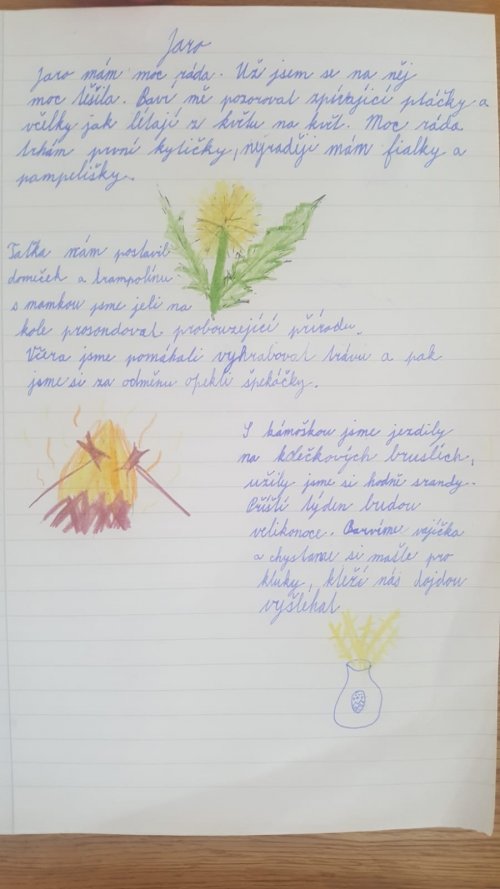 Jaro
Jaro mám moc ráda. Už jsem se na něj
moc těšila. Baví mě pozorovat zpívající ptáčky a
včelky jak lítají z květu na květ. Moc ráda
trhám první kytičky, nejraději mám fialky a
pampelišky.
Taťka nám postavil
domeček a trampolínu
s mamkou jsme jeli na
kole prosondovat probouzející přírodu.
Včera jsme pomáhali vyhrabovat trávu a pak
jsme si za odměnu opekli špekáčky.
S kámoškou jsme jezdily
na kolečkových bruslích,
užily jsme si hodně srandy.
Příští týden budou
velikonoce. Barvíme vajíčka
a chystame si mašle pro
kluky, kteří nás dojdou
vyšlehat